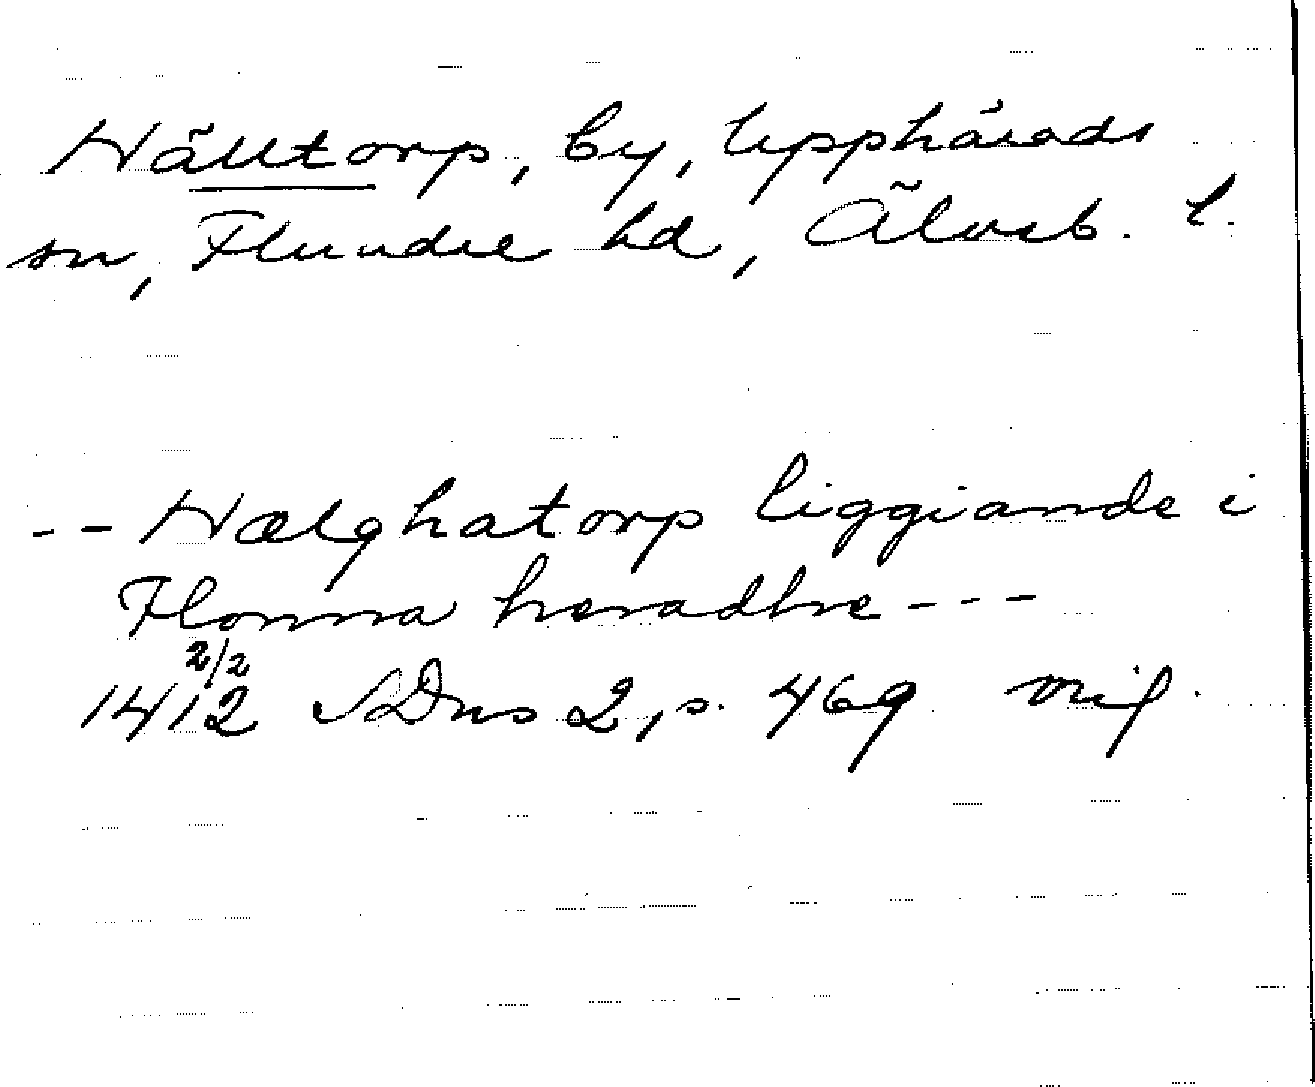 Hälltorp, by, Upphärads
sn, Flundre hd, Älvsb. l.
-- Hælghatorp liggiande i
Flonna hæradhe ---
2/2
1412 SDns 2, s. 469 orig.